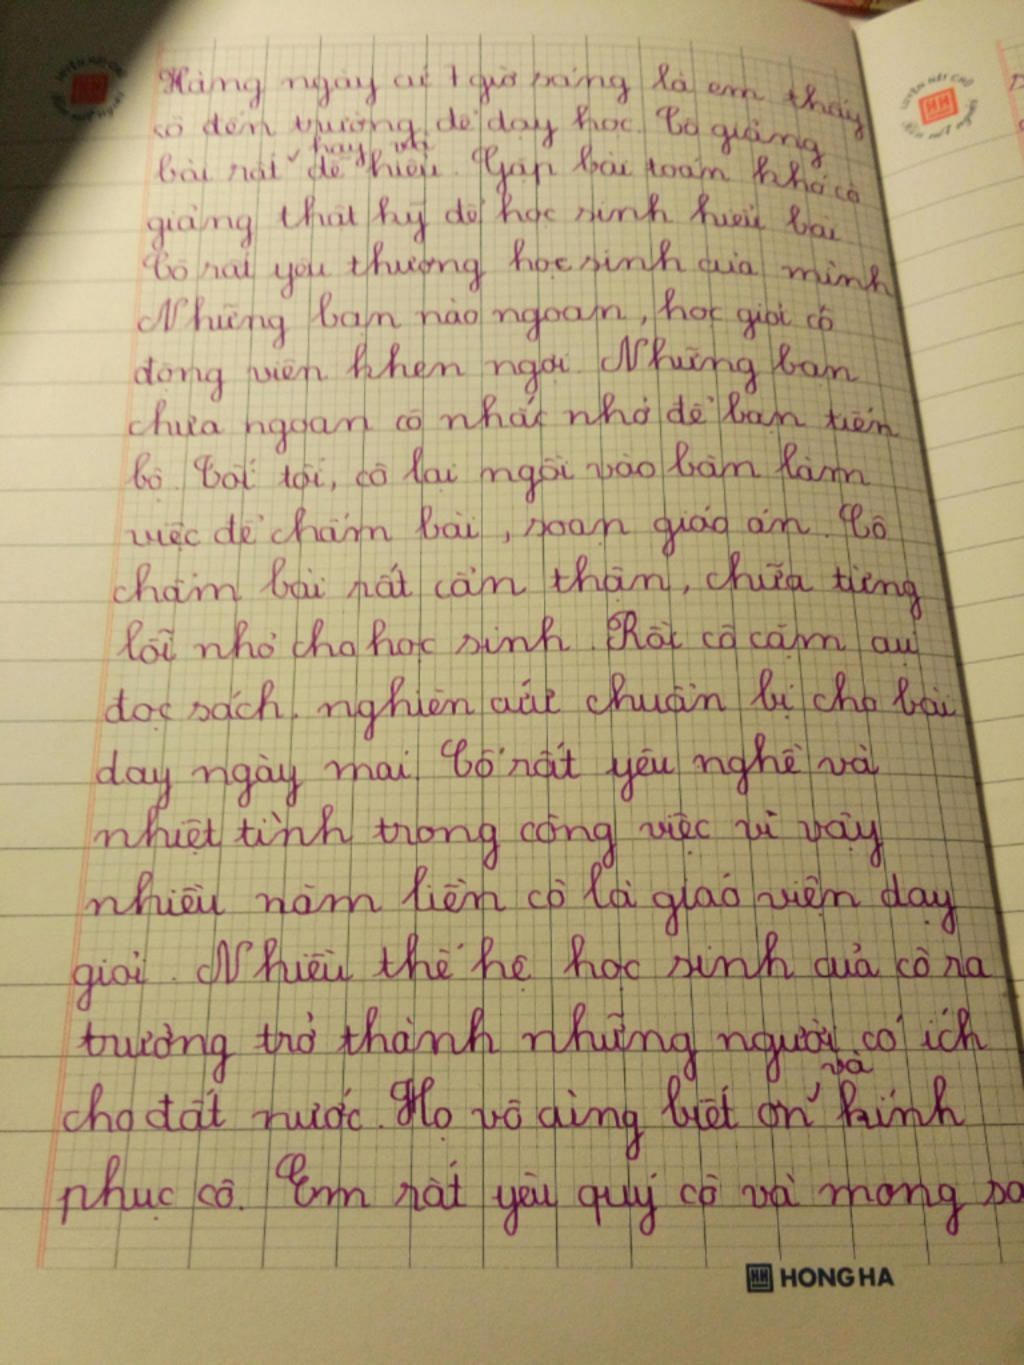 Hàng ngày cứ 7 giờ sáng là em thấy
cô đến trường để dạy học. Cô giảng
hay và
bài rất dễ hiểu. Gặp bài toán khó cô
giảng thật kỹ để học sinh hiểu bài
Cô rất yêu thương học sinh của mình
Những bạn nào ngoan, học giỏi cô
động viên khen ngợi. Những bạn
chưa ngoan cô nhắc nhở để bạn tiến
bộ. Tối tối, cô lại ngồi vào bàn làm
việc để chấm bài, soạn giáo án. Cô
chấm bài rất cẩn thận, chữa từng
lỗi nhỏ cho học sinh. Rồi cô cặm cụi
đọc sách, nghiên cứu chuẩn bị cho bài
dạy ngày mai. Cô rất yêu nghề và
nhiệt tình trong công việc vì vậy
nhiều năm liền cô là giáo viên dạy
giỏi. Nhiều thế hệ học sinh của cô ra
trường trở thành những người có ích
và
cho đất nước. Họ vô cùng biết ơn kính
phục cô. Em rất yêu quý cô và mong sa
HONG HA